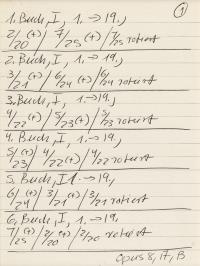 1
1. Buch, I, 1. -> 19.,
2/20 (+) 7/25 (+) 7/25 retiert
2. Buch, I, 1. -> 19.,
3/21 (+) 6/24 (+) 6/24 retiert
3. Buch, I, 1. -> 19.,
4/22 (+) 5/23 (+) 5/23 retiert
4. Buch, I, 1. -> 19.,
5/23 4/22 (+) 4/22 retiert
5. Buch, I 1. -> 19.,
6/24 (+) 3/21 (+) 3/21 retiert
6. Buch, I, 1. -> 19.,
7/25 (+) 2/20 (+) 2/20 retiert
Opus 8, A, B